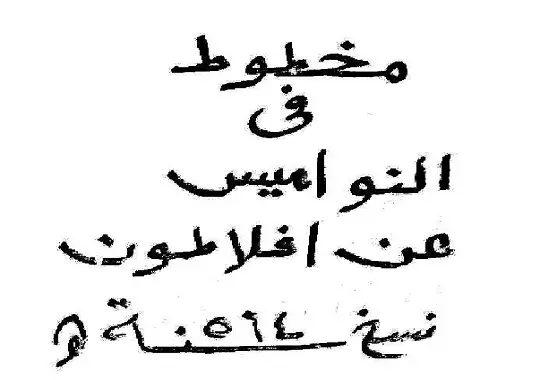 مخطوط
فى
النواميس
عن افلاطون
نسخ سنة ٥٦٤ هـ